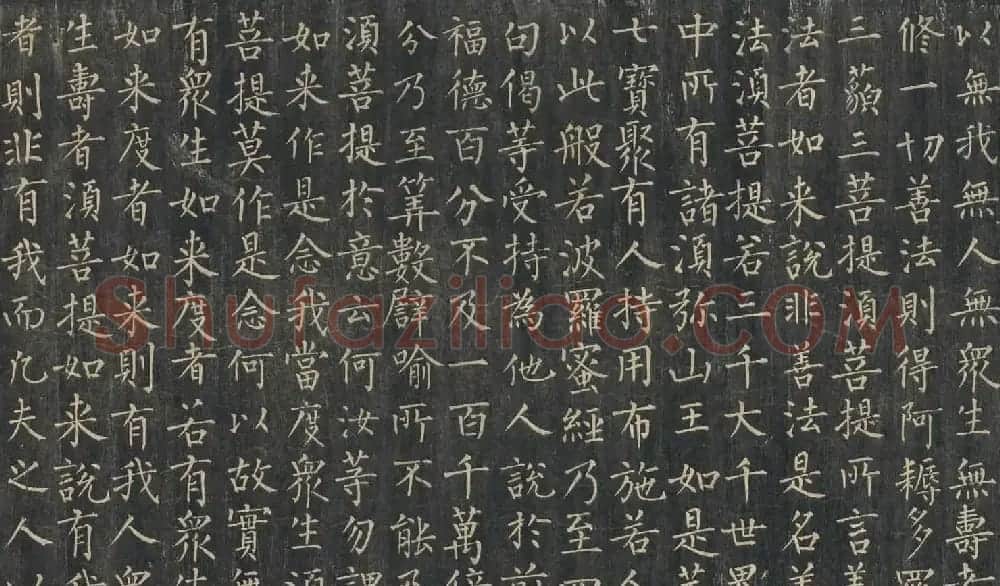 以無我無人無眾生無壽者
修一切善法則得阿耨多羅
三藐三菩提湏菩提所言善
法者如来說非善法是名善
法湏菩提若三千大千世界
中所有諸湏弥山王如是等
七寶聚有人持用布施若人
以此般若波羅蜜經乃至四
句偈等受持為他人說於前
福德百分不及一百千萬億
分乃至筭數譬喻所不能及
湏菩提於意云何汝等勿謂
如来作是念我當度眾生湏
菩提莫作是念何以故實無
有眾生如来度者若有眾生
如来度者如来則有我人眾
生壽者湏菩提如来說有我
者則非有我而凡夫之人
Shufaziliao.COM